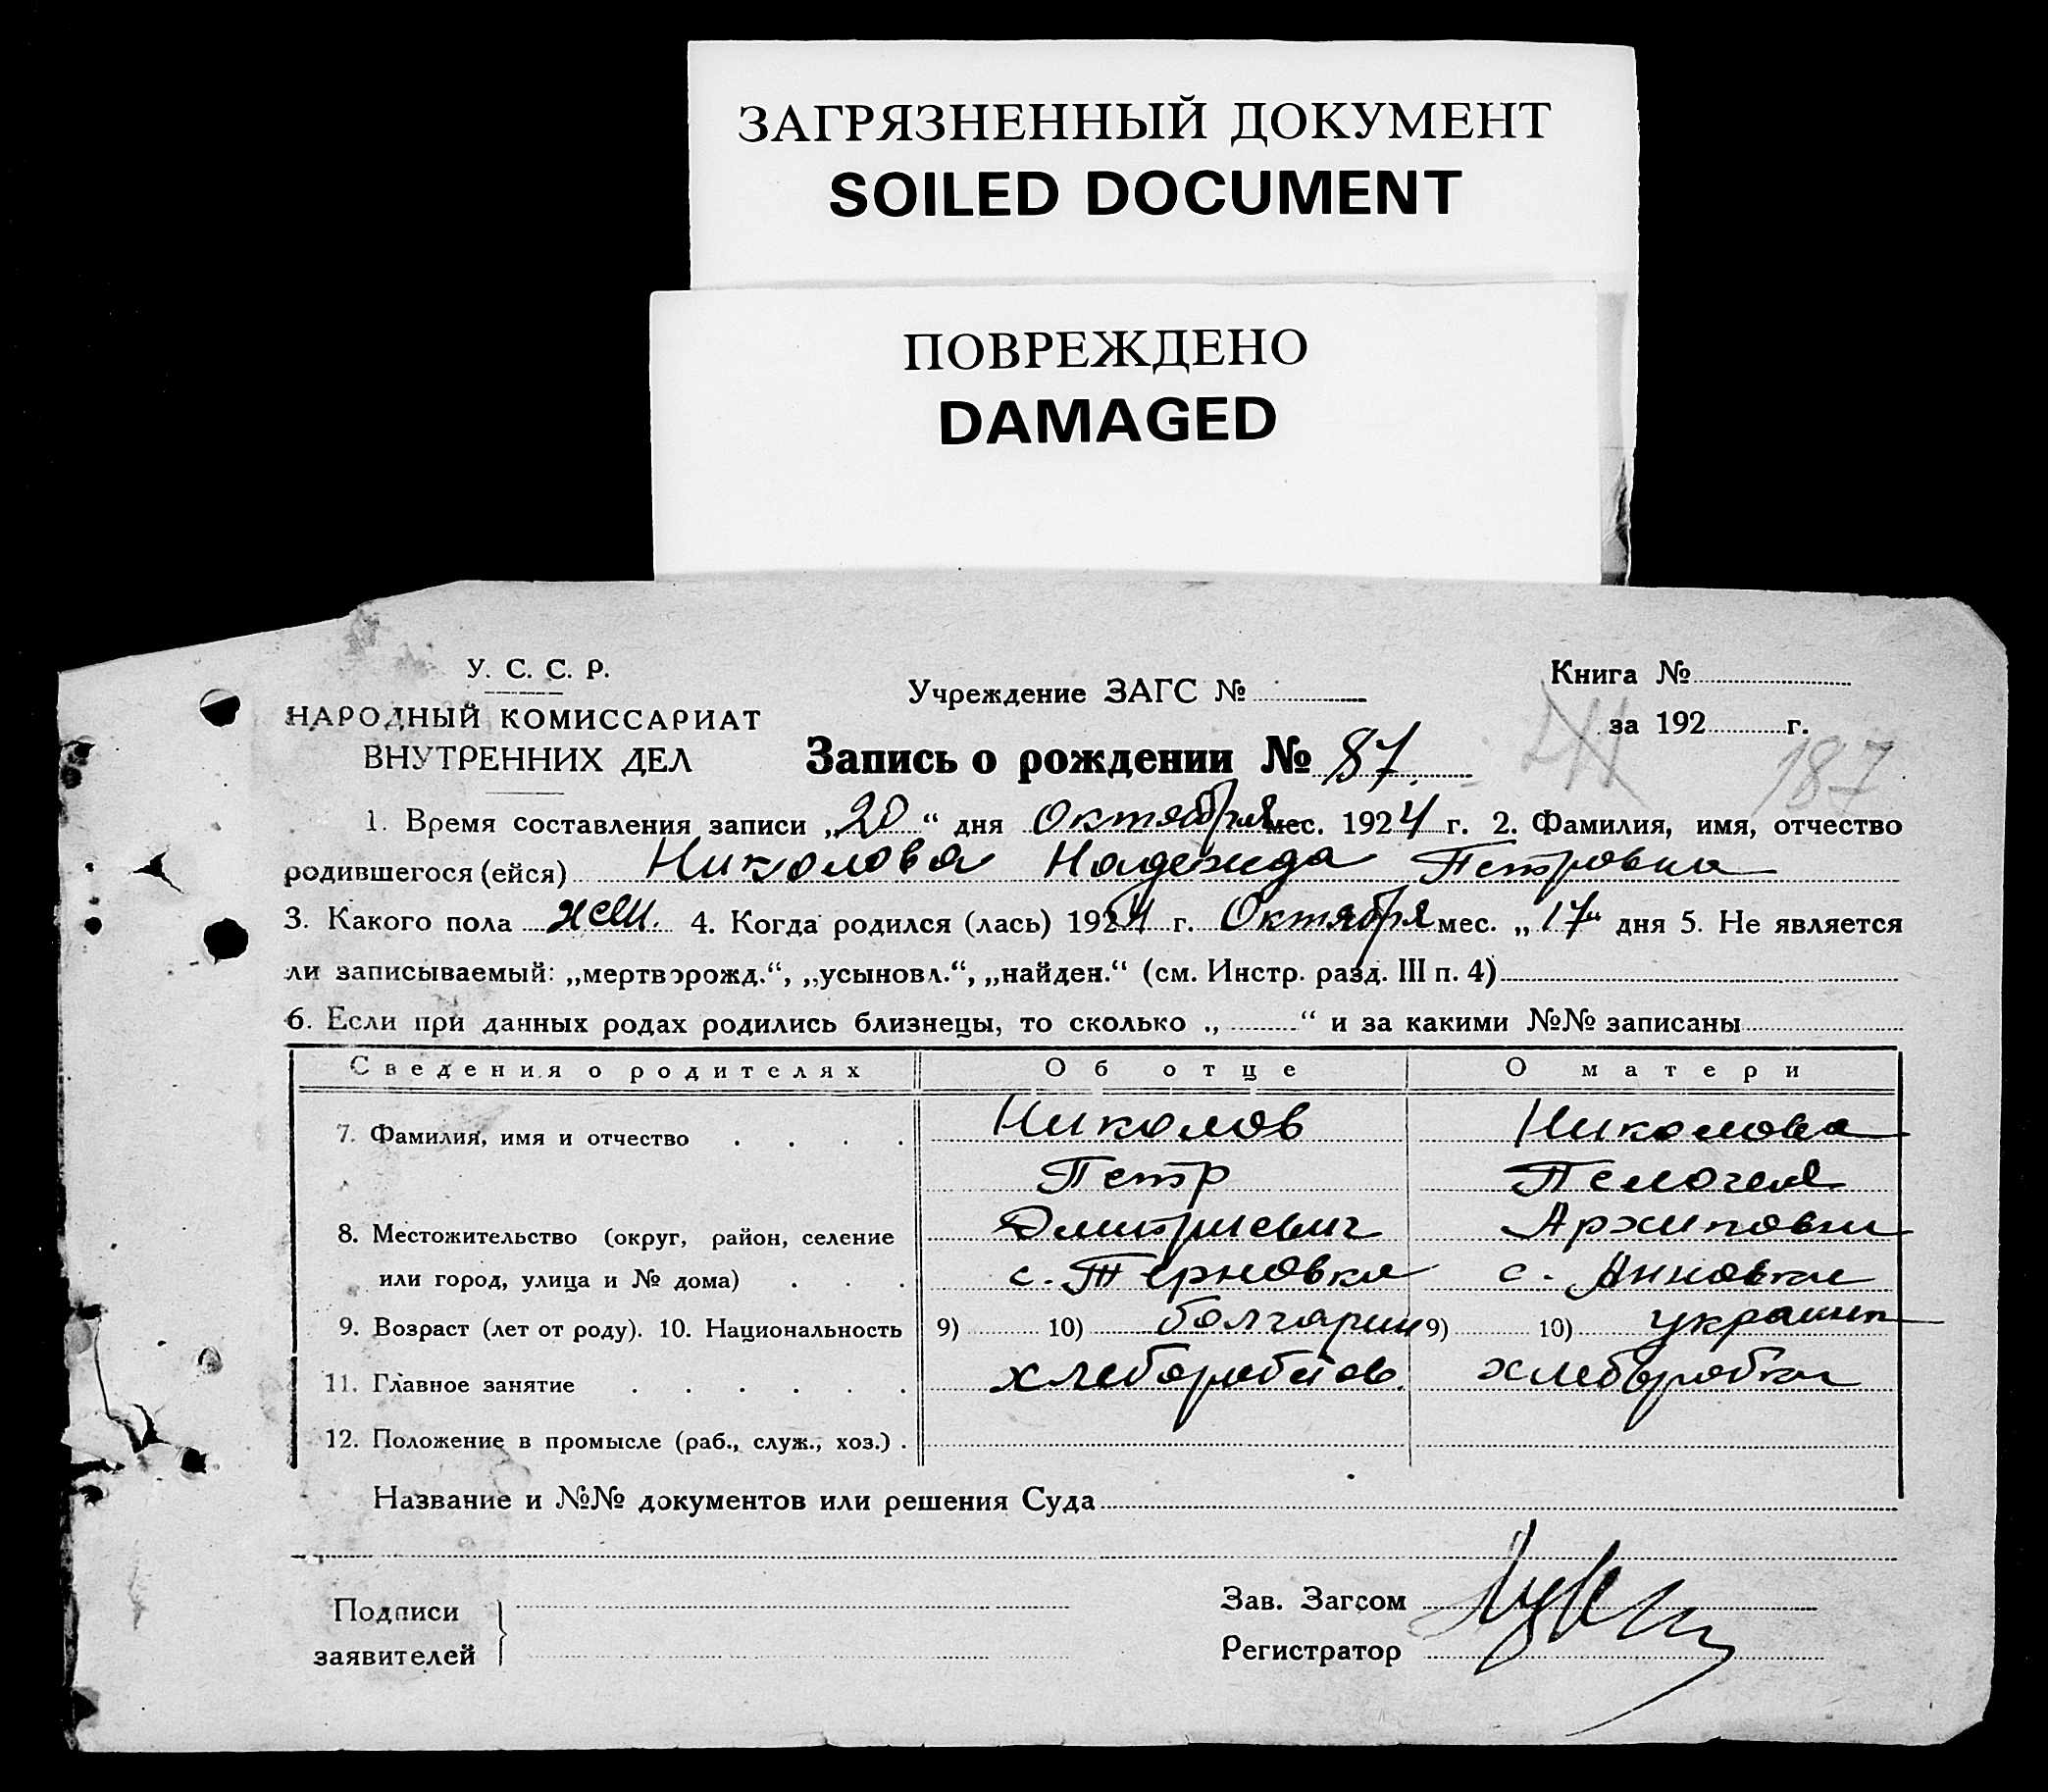 ЗАГРЯЗНЕННЫЙ ДОКУМЕНТ
SOILED DOCUMENT
ПОВРЕЖДЕНО
DAMAGED
У. С. С. Р.
НАРОДНЫЙ КОМИССАРИАТ
ВНУТРЕННИХ ДЕЛ
Учреждение ЗАГС №
Книга №
за 192 г.
Запись о рождении № 87.
187
1. Время составления записи „20“ дня Октября мес. 1924 г. 2. Фамилия, имя, отчество
родившегося (ейся) Николова Надежда Петровна
3. Какого пола жен. 4. Когда родился (лась) 1924 г. Октября мес. „17“ дня 5. Не является
ли записываемый: „мертворожд.“, „усыновл.“, „найден.“ (см. Инстр. разд. III п. 4)
6. Если при данных родах родились близнецы, то сколько „ “ и за какими №№ записаны
Сведения о родителях Об отце О матери
7. Фамилия, имя и отчество Николов Николова
Петр Пелагея
Дмитриевич Архиповн
8. Местожительство (округ, район, селение
или город, улица и № дома) с. Терновка с. Анновка
9. Возраст (лет от роду). 10. Национальность 9) 10) болгарин 9) 10) украинк
11. Главное занятие хлеборобство. хлеборобка
12. Положение в промысле (раб., служ., хоз.)
Название и №№ документов или решения Суда
Подписи
заявителей
Зав. Загсом
Регистратор